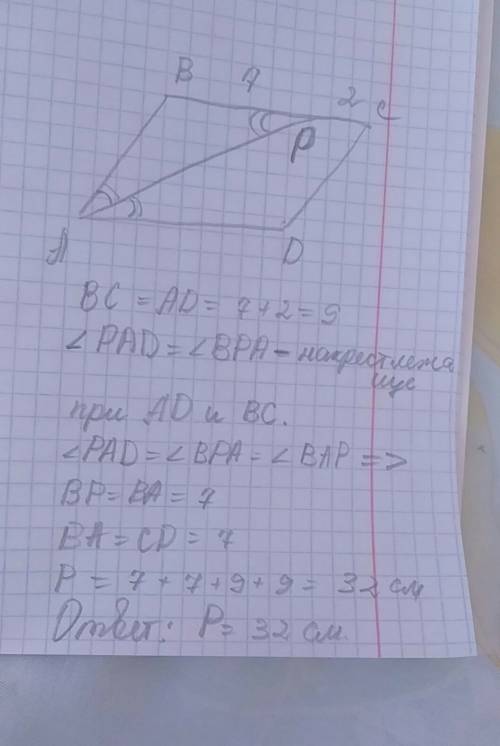 B 7 2 C
P
A D
BC = AD = 7+2 = 9
∠PAD = ∠BPA - накрестлежа
щие
при AD и BC.
∠PAD = ∠BPA = ∠BAP =>
BP = BA = 7
BA = CD = 7
P = 7 + 7 + 9 + 9 = 32 см
Ответ: P = 32 см.